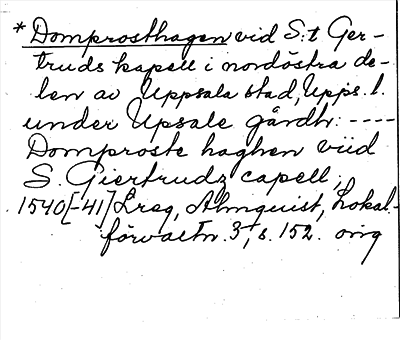 * Domprosthagen vid S:t Ger-
truds kapell i nordöstra de-
len av Uppsala stad, Upps. l.
under Upsale gårdh: ----
Domproste haghen viid
S. Giertrudz capell,
1540[-41] Lreg, Almquist, Lokal-
förvaltn. 3, s. 152. orig